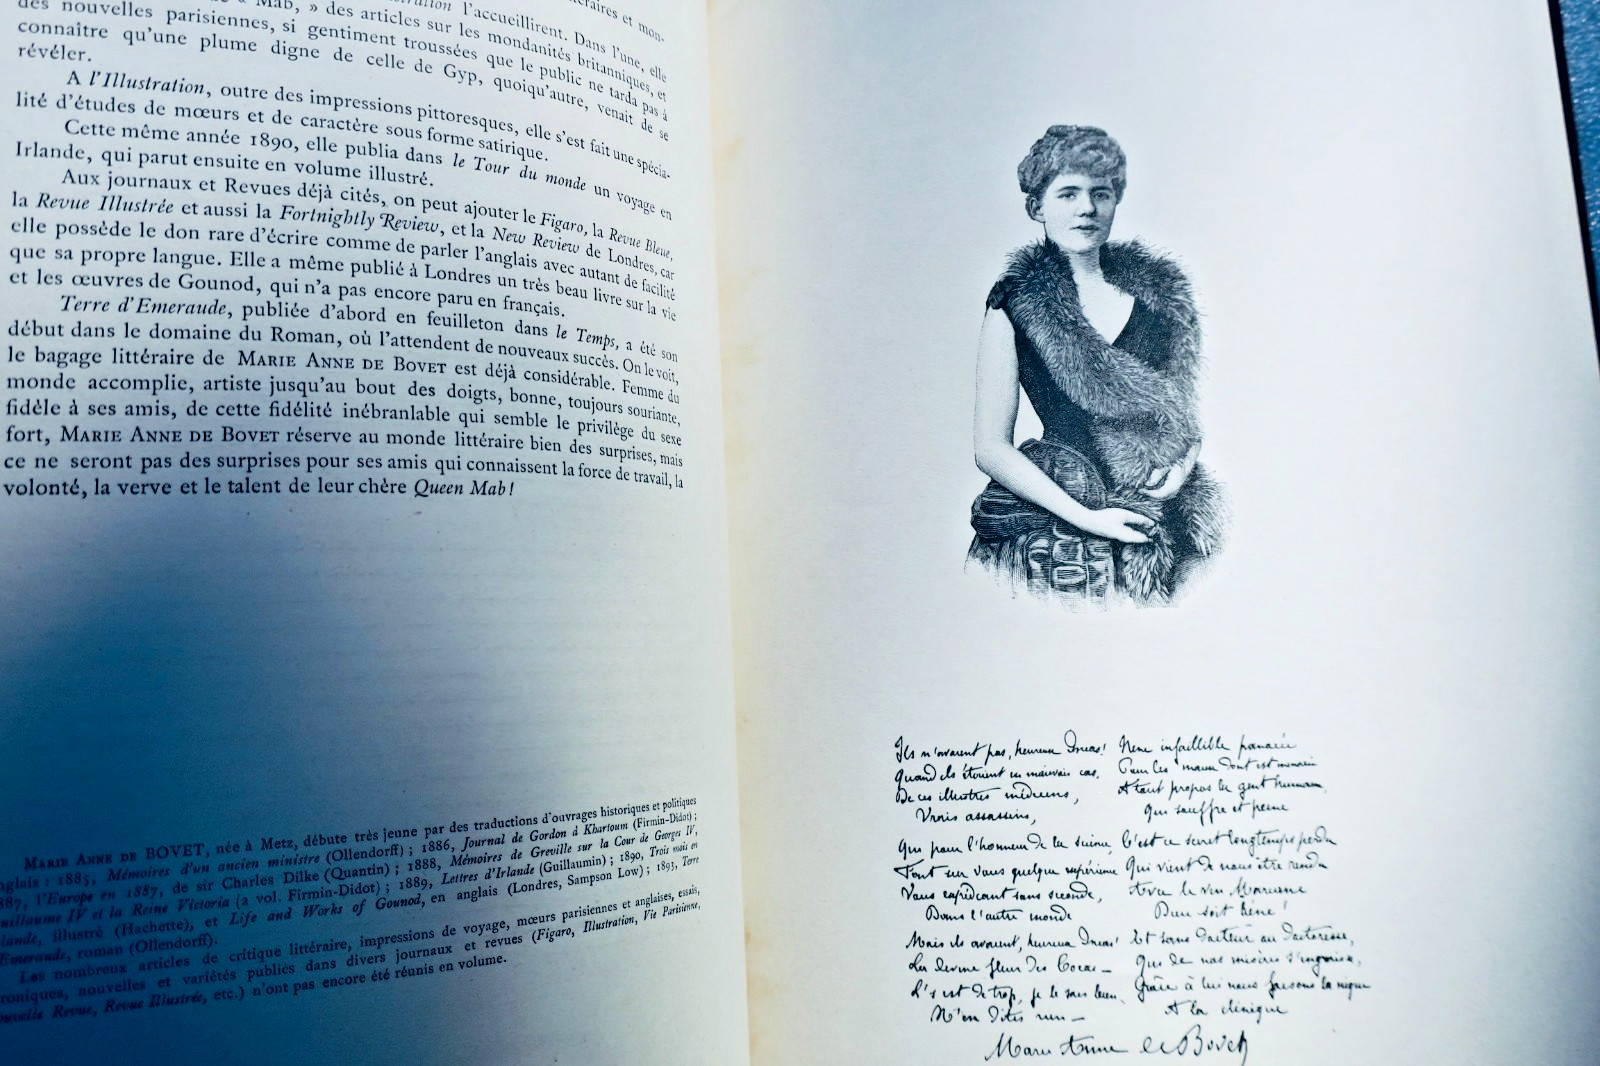 l'accueillirent. Dans l'une, elle
Mab, » des articles sur les mondanités britanniques, et
des nouvelles parisiennes, si gentiment troussées que le public ne tarda pas à
connaître qu'une plume digne de celle de Gyp, quoiqu'autre, venait de se
révéler.
A l'Illustration, outre des impressions pittoresques, elle s'est fait une spécia-
lité d'études de mœurs et de caractère sous forme satirique.
Cette même année 1890, elle publia dans le Tour du monde un voyage en
Irlande, qui parut ensuite en volume illustré.
Aux journaux et Revues déjà cités, on peut ajouter le Figaro, la Revue Bleue,
la Revue Illustrée et aussi la Fortnightly Review, et la New Review de Londres, car
elle possède le don rare d'écrire comme de parler l'anglais avec autant de facilité
que sa propre langue. Elle a même publié à Londres un très beau livre sur la vie
et les œuvres de Gounod, qui n'a pas encore paru en français.
Terre d'Emeraude, publiée d'abord en feuilleton dans le Temps, a été son
début dans le domaine du Roman, où l'attendent de nouveaux succès. On le voit,
le bagage littéraire de MARIE ANNE DE BOVET est déjà considérable. Femme du
monde accomplie, artiste jusqu'au bout des doigts, bonne, toujours souriante,
fidèle à ses amis, de cette fidélité inébranlable qui semble le privilège du sexe
fort, MARIE ANNE DE BOVET réserve au monde littéraire bien des surprises, mais
ce ne seront pas des surprises pour ses amis qui connaissent la force de travail, la
volonté, la verve et le talent de leur chère Queen Mab!
MARIE ANNE DE BOVET, née à Metz, débute très jeune par des traductions d'ouvrages historiques et politiques
anglais : 1885, Mémoires d'un ancien ministre (Ollendorff) ; 1886, Journal de Gordon à Khartoum (Firmin-Didot) ;
1887, l'Europe en 1887, de sir Charles Dilke (Quantin) ; 1888, Mémoires de Greville sur la Cour de Georges IV,
Guillaume IV et la Reine Victoria (2 vol. Firmin-Didot) ; 1889, Lettres d'Irlande (Guillaumin) ; 1890, Trois mois en
Irlande, illustré (Hachette), et Life and Works of Gounod, en anglais (Londres, Sampson Low) ; 1893, Terre
d'Emeraude, roman (Ollendorff).
Les nombreux articles de critique littéraire, impressions de voyage, mœurs parisiennes et anglaises, essais,
chroniques, nouvelles et variétés publiés dans divers journaux et revues (Figaro, Illustration, Vie Parisienne,
Nouvelle Revue, Revue Illustrée, etc.) n'ont pas encore été réunis en volume.
Ils n'avaient pas, heureux Incas!
Quand ils étaient en mauvais cas,
De ces illustres médecins,
Vrais assassins,
Qui pour l'honneur de la
Font sur vous quelque expérience
Vous expédient sans seconde,
Dans l'autre monde
Mais ils avaient, heureux Incas!
La divine fleur des Cocas —
L's est de trop, je le sais bien,
N'en dites rien —
infaillible panacée
Pour les maux dont est
A tout propos la gent humaine,
Qui souffre et peine
C'est ce secret longtemps perdu
Qui vient de nous être rendu
Avec le vin Mariani
Dieu soit béni!
Et sans docteur ou doctoresse,
Qui de nos misères s'engraisse,
Grâce à lui nous faisons la nique
A la clinique
Marie Anne de Bovet